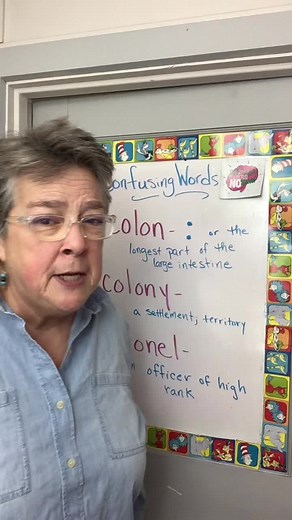 onfusing Words
NO
colon - : or the
longest part of the
large intestine
colony -
a settlement; territory
onel -
officer of high
rank